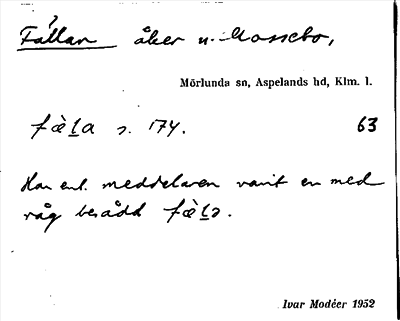 Fällan åker u. Mossebo,
Mörlunda sn, Aspelands hd, Klm. l.
fæ̀la s. 174. 63
Har enl. meddelaren varit en med
råg besådd fæ̀lɔ.
Ivar Modéer 1952